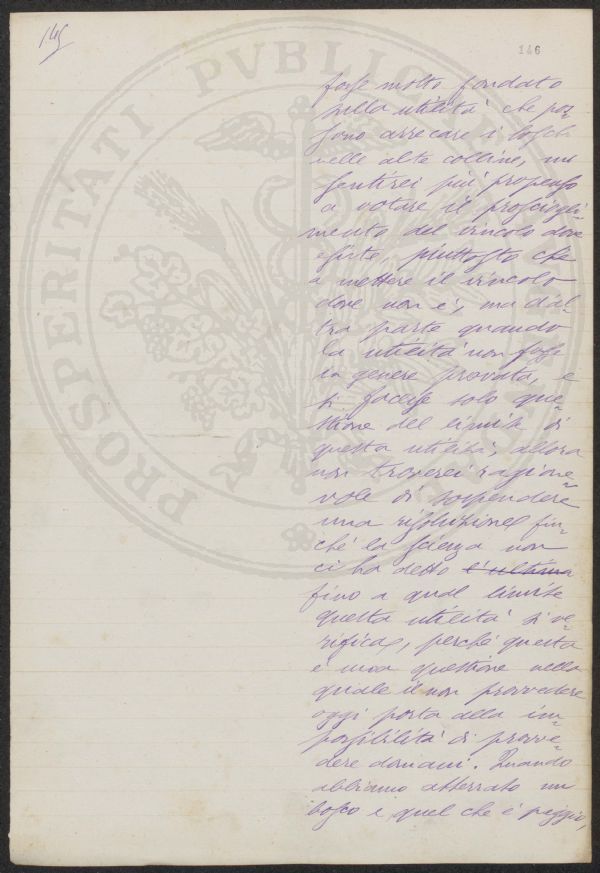 145
146
PROSPERITATI PVBLICAE
fosse molto fondato
sulla utilità che pos=
sono arrecare i boschi
nelle alte colline, mi
sentirei più propenso
a votare il prosciogli=
mento del vincolo dove
esiste, piuttosto che
a mettere il vincolo
dove non è; ma d'al=
tra parte quando
la utilità non fosse
in genere provata, e
si facesse solo que=
stione del limite di
questa utilità, allora
non troverei ragione=
vole di sospendere
una risoluzione fin=
chè la scienza non
ci ha detto l'ultima
fino a qual limite
questa utilità si ve=
rifica, perchè questa
è una questione nella
quale il non provvedere
oggi porta alla im=
possibilità di provve=
dere domani. Quando
abbiamo atterrato un
bosco e quel che è peggio,